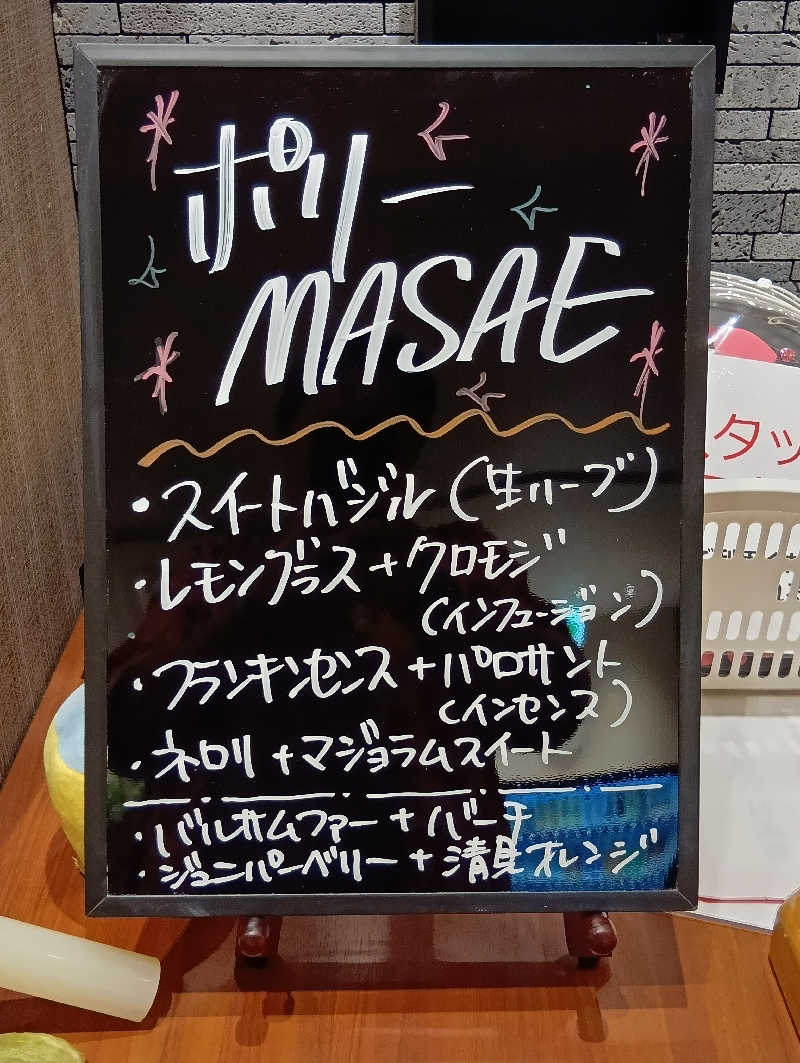 ポリー
MASAE
・スイートバジル(生ハーブ)
・レモングラス+クロモジ
(インフュージョン)
・フランキンセンス+パロサント
(インセンス)
・ネロリ+マジョラムスイート
・バルサムファー+バーチ
・ジュニパーベリー+清見オレンジ
スタッ